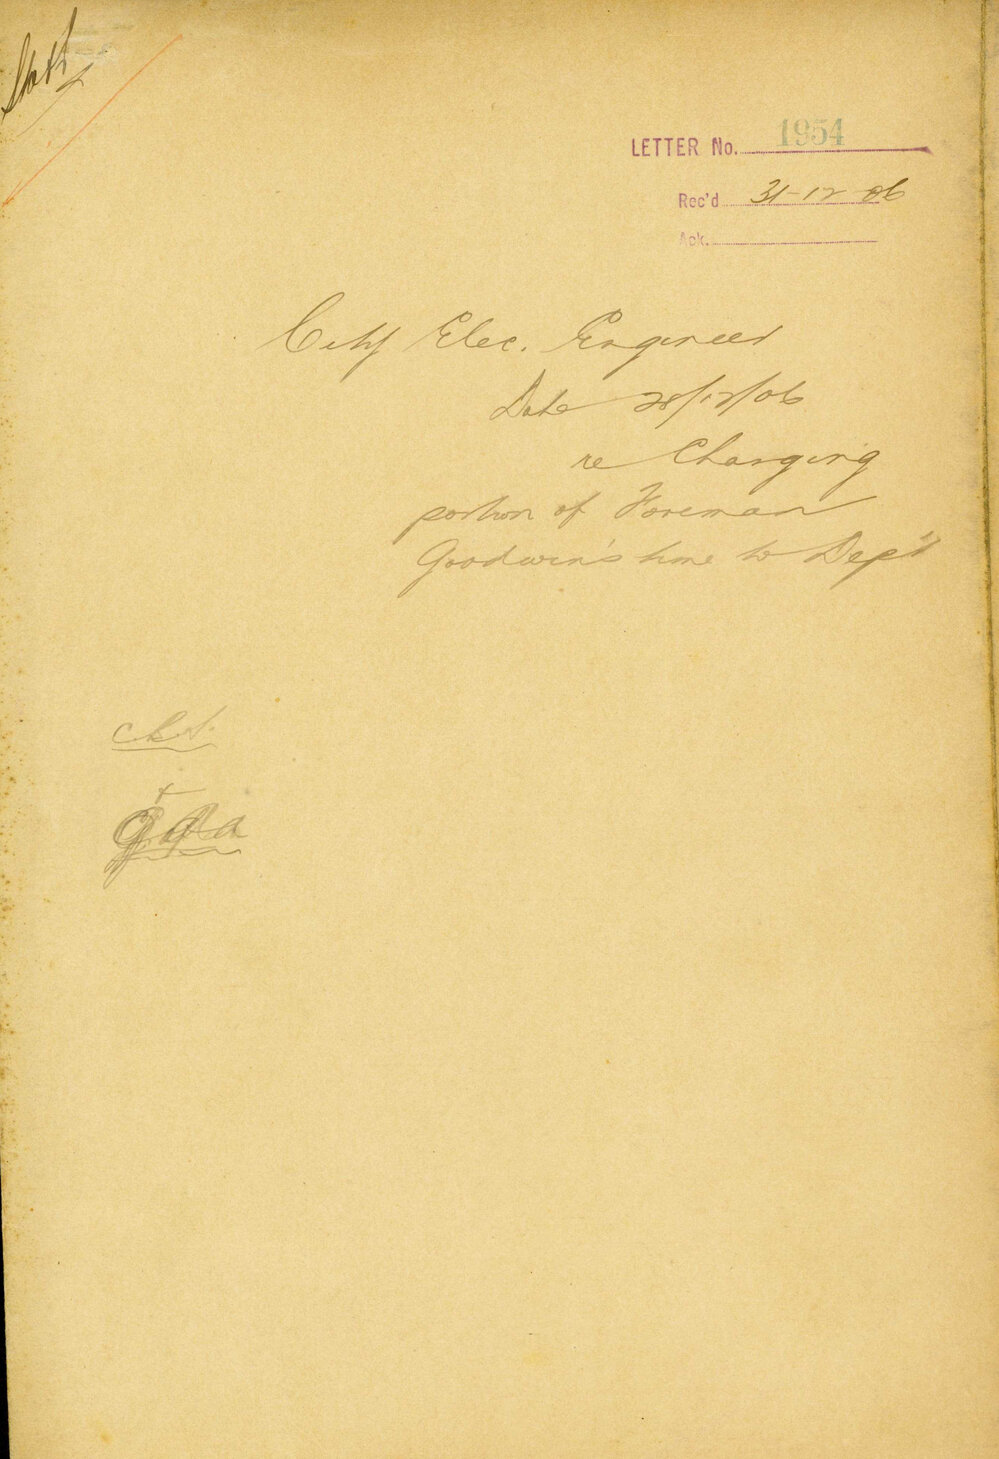 Staff
LETTER No. 1954
Rec'd 31-12-06
Ack.
City Elec. Engineer
Date 28/12/06
re Charging
portion of Foreman
Goodwin's time to Dep't